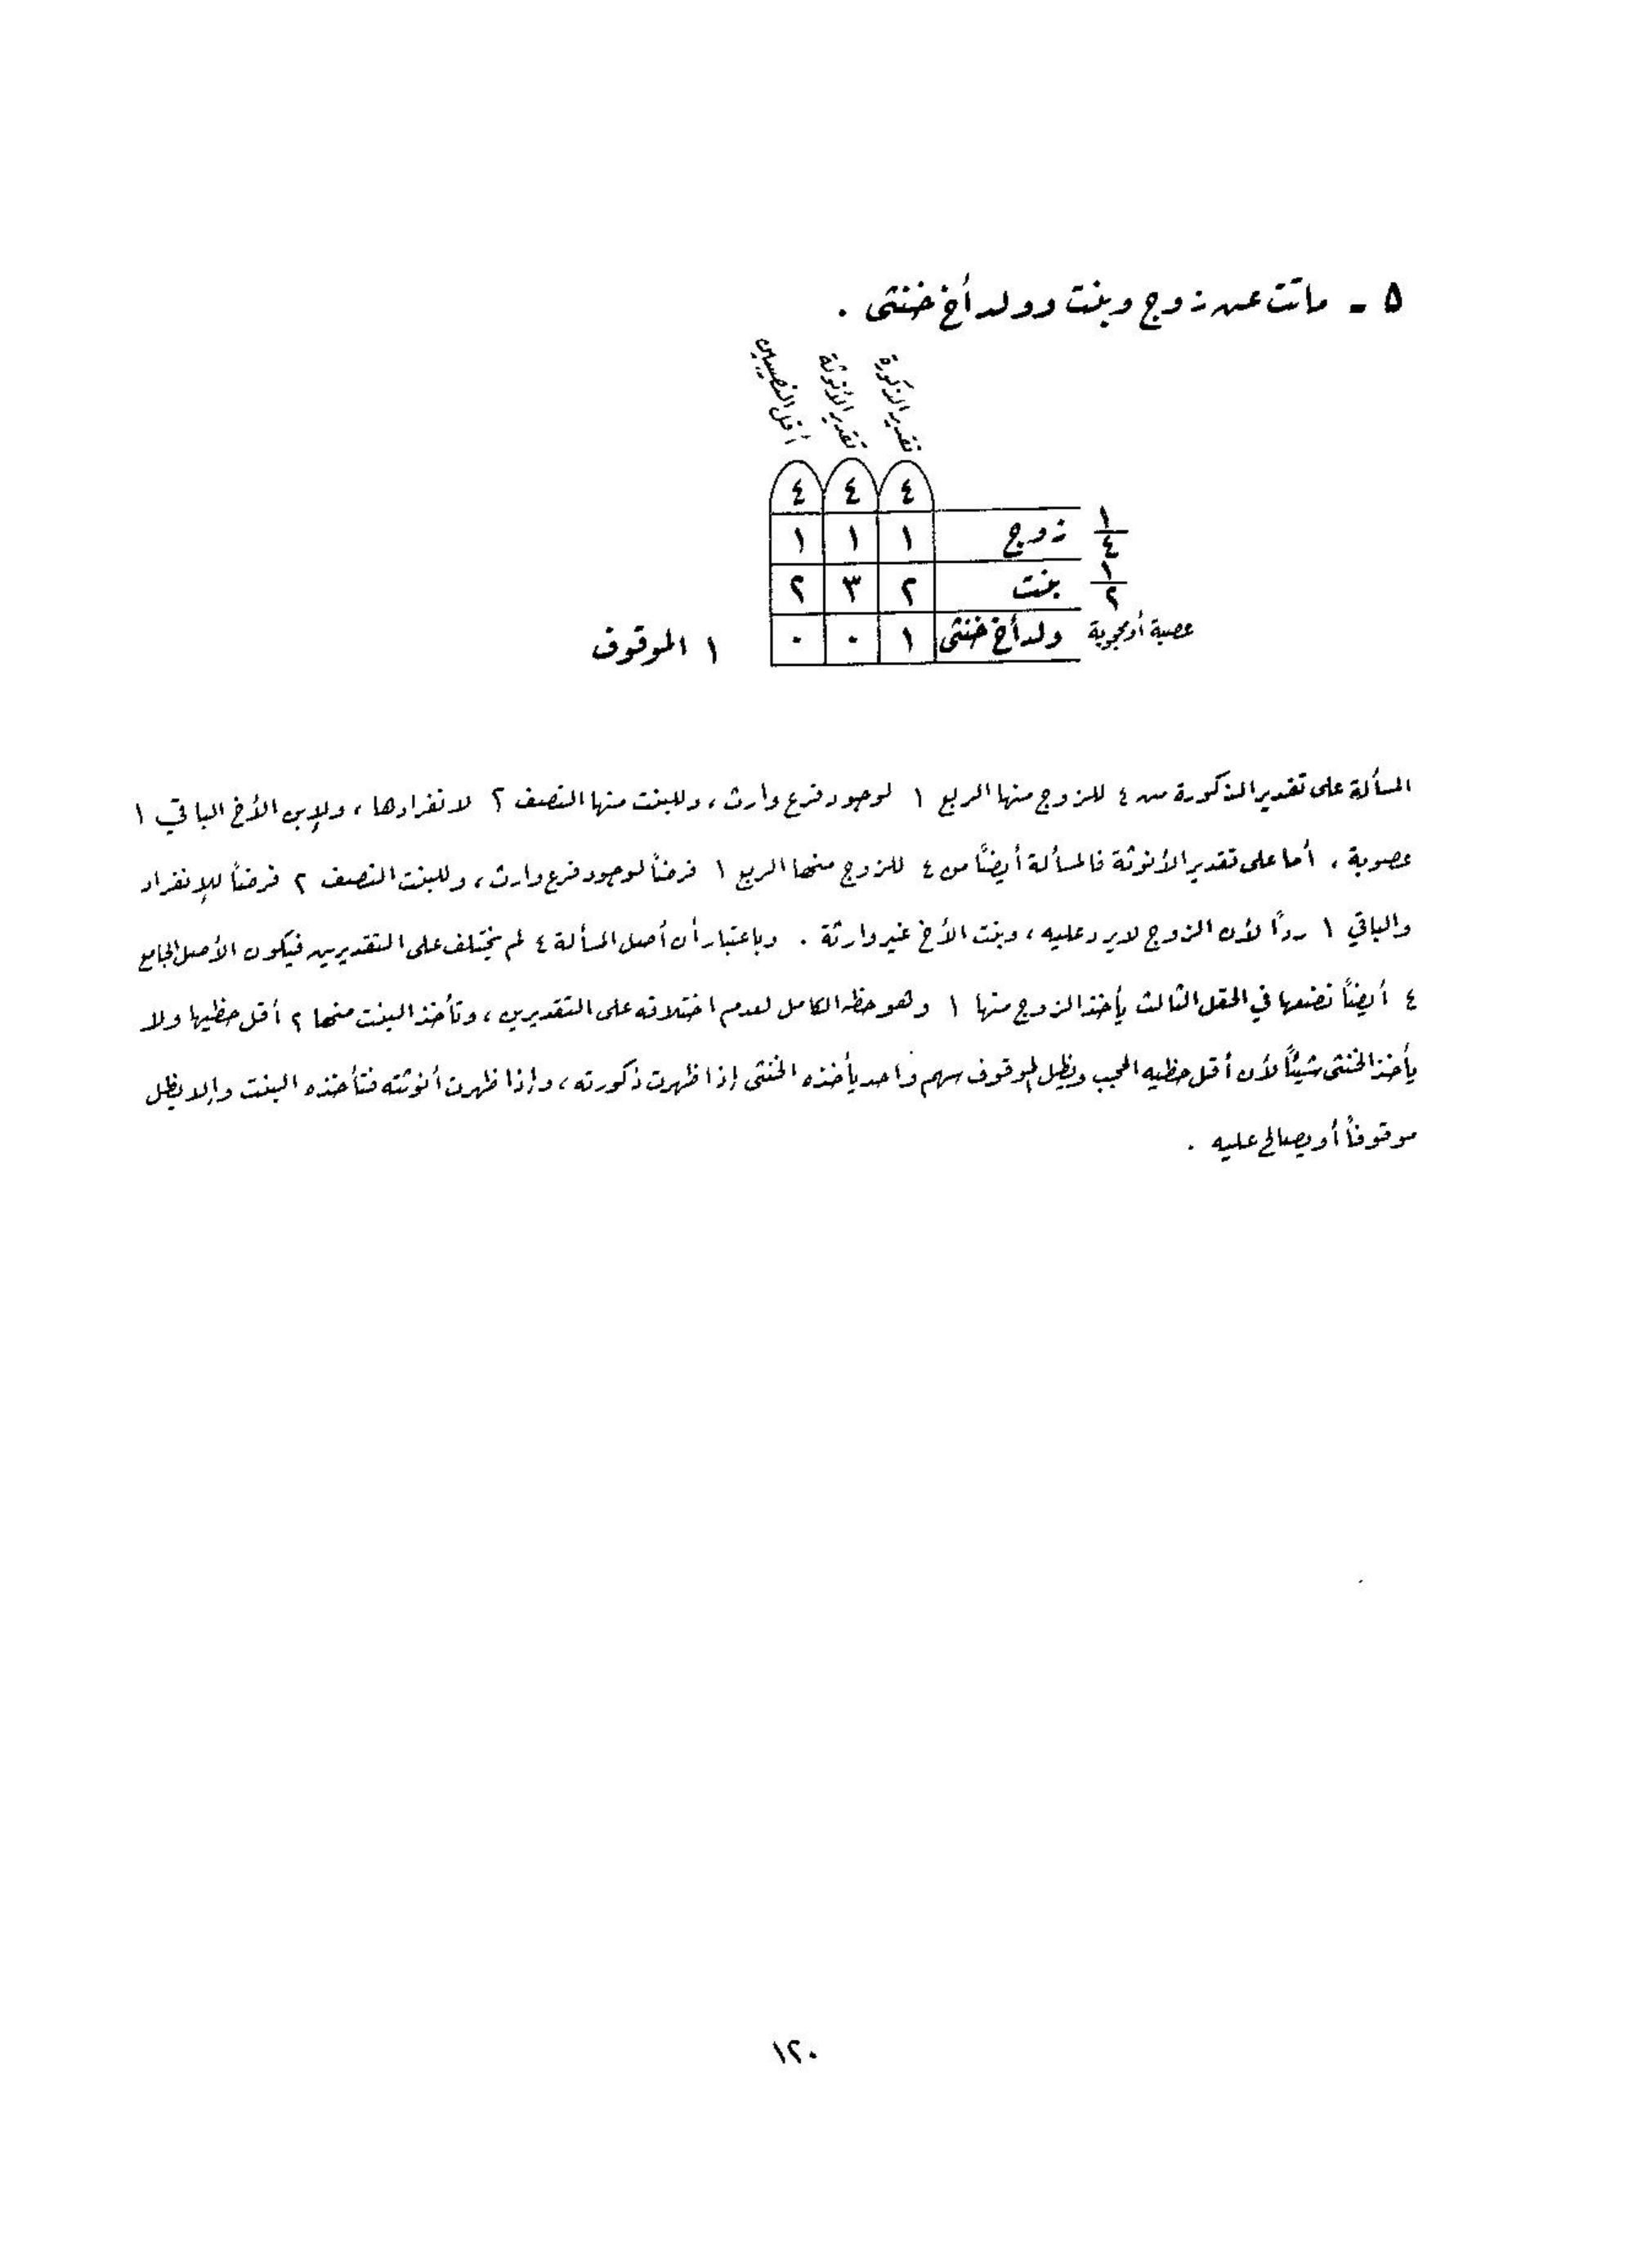 ٥ - ماتت عن زوج وبنت وولد أخ خنثى .
تقدير الذكورة تقدير الأنوثة أقل النصيبين
٤ ٤ ٤
١/٤ زوج ١ ١ ١
١/٢ بنت ٢ ٣ ٢
عصبة أو محجوبة ولد أخ خنثى ١ ٠ ٠ ١ الموقوف
المسألة على تقدير الذكورة من ٤ للزوج منها الربع ١ لوجود فرع وارث ، وللبنت منها النصف ٢ لانفرادها ، ولإبن الأخ الباقي ١
عصوبة . أما على تقدير الأنوثة فالمسألة أيضاً من ٤ للزوج منها الربع ١ فرضاً لوجود فرع وارث ، وللبنت النصف ٢ فرضاً للإنفراد
والباقي ١ رداً لأن الزوج لا يرد عليه ، وبنت الأخ غير وارثة . وباعتبار أن أصل المسألة ٤ لم يختلف على التقديرين فيكون الأصل الجامع
٤ أيضاً نضعها في الحقل الثالث يأخذ الزوج منها ١ وهو حظه الكامل لعدم اختلافه على التقديرين ، وتأخذ البنت منها ٢ أقل حظيها ولا
يأخذ الخنثى شيئاً لأن أقل حظيه الحجب ويظل الموقوف سهم واحد يأخذه الخنثى إذا ظهرت ذكورته ، وإذا ظهرت أنوثته فتأخذه البنت وإلا يظل
موقوفاً أو يصالح عليه .
١٢٠